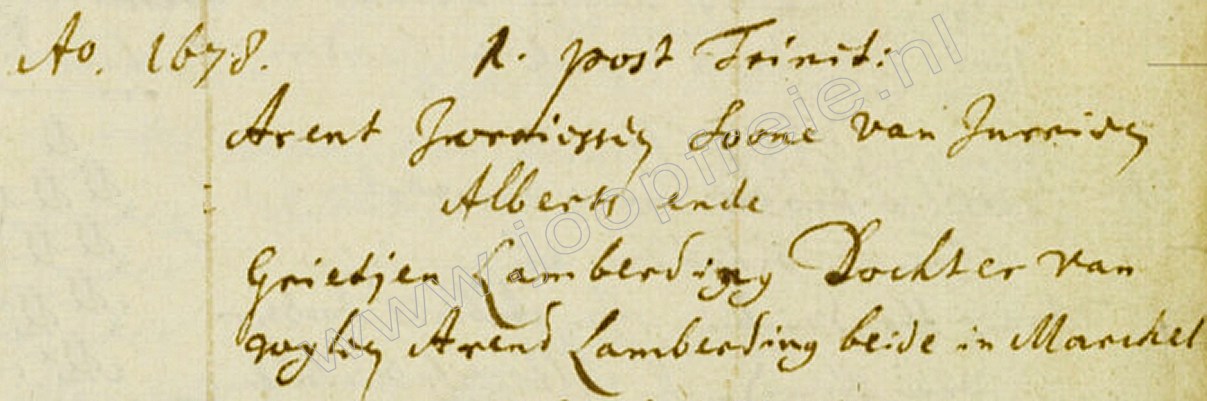 Ao. 1678. 1. post Trinit:
Arent Jurriessen Soone van Jurrien
Alberts ende
Grietjen Lamberding Dochter van
wylen Arend Lamberding beide in Marckel
www.joopfreie.nl